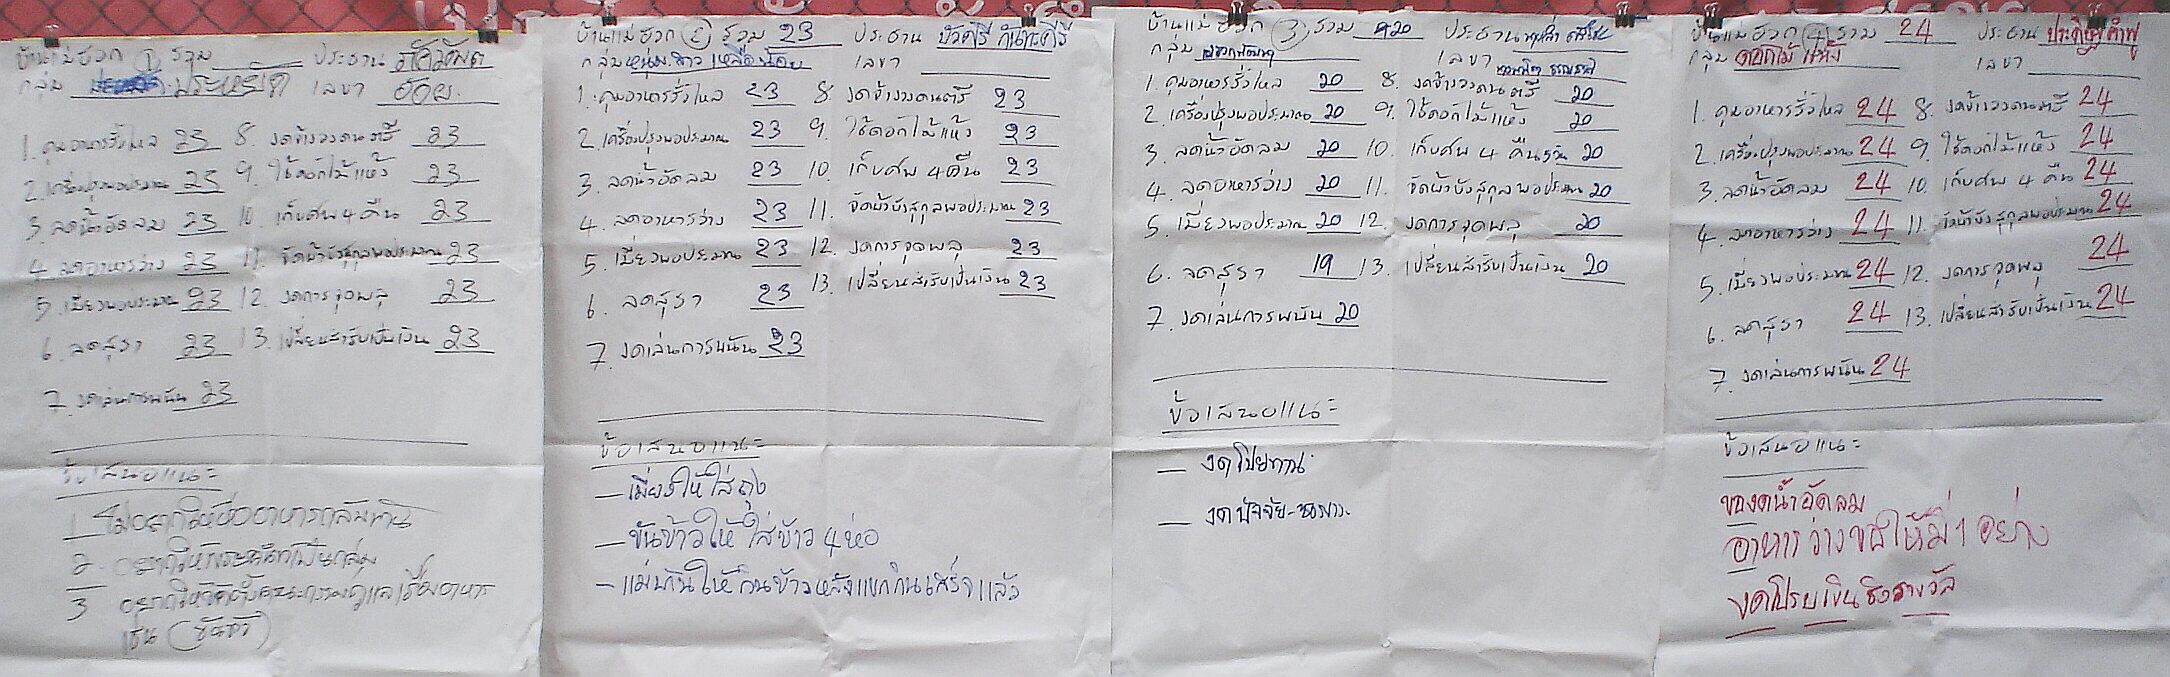 บ้านแม่ฮวก 1 รวม ประธาน
กลุ่ม ประหยัด เลขา อ้อย
1. คุมอาหารรั่วไหล 23 8. งดจ้างวงดนตรี 23
2. เครื่องปรุงพอประมาณ 23 9. ใช้ดอกไม้แห้ง 23
3. ลดน้ำอัดลม 23 10. เก็บศพ 4 คืน 23
4. ลดอาหารว่าง 23 11. จัดผ้าบังสุกุลพอประมาณ 23
5. เมี่ยงพอประมาณ 23 12. งดการจุดพลุ 23
6. ลดสุรา 23 13. เปลี่ยนสำรับเป็นเงิน 23
7. งดเล่นการพนัน 23
ข้อเสนอแนะ
1 ไม่อยากให้ซื้ออาหารกลับบ้าน
2
3 อยากให้จัดตั้งคณะกรรมดูแลเรื่องอาหาร
เช่น (ขันข้าว)
บ้านแม่ฮวก 2 รวม 23 ประธาน บัวศรี กันทะศรี
กลุ่ม หนุ่มสาว เหลือน้อย เลขา
1. คุมอาหารรั่วไหล 23 8. งดจ้างวงดนตรี 23
2. เครื่องปรุงพอประมาณ 23 9. ใช้ดอกไม้แห้ง 23
3. ลดน้ำอัดลม 23 10. เก็บศพ 4 คืน 23
4. ลดอาหารว่าง 23 11. จัดผ้าบังสุกุลพอประมาณ 23
5. เมี่ยงพอประมาณ 23 12. งดการจุดพลุ 23
6. ลดสุรา 23 13. เปลี่ยนสำรับเป็นเงิน 23
7. งดเล่นการพนัน 23
ข้อเสนอแนะ
– เมี่ยงให้ใส่ถุง
– ขันข้าวให้ใส่ข้าว 4 ห่อ
– แม่บ้านให้กินข้าวหลังแขกกินเสร็จแล้ว
บ้านแม่ฮวก 3 รวม 20 ประธาน
กลุ่ม เลขา
1. คุมอาหารรั่วไหล 20 8. งดจ้างวงดนตรี 20
2. เครื่องปรุงพอประมาณ 20 9. ใช้ดอกไม้แห้ง 20
3. ลดน้ำอัดลม 20 10. เก็บศพ 4 คืน 5 วัน 20
4. ลดอาหารว่าง 20 11. จัดผ้าบังสุกุลพอประมาณ 20
5. เมี่ยงพอประมาณ 20 12. งดการจุดพลุ 20
6. ลดสุรา 19 13. เปลี่ยนสำรับเป็นเงิน 20
7. งดเล่นการพนัน 20
ข้อเสนอแนะ
– งดโปยทาน
– งดปัจจัย-
บ้านแม่ฮวก 4 รวม 24 ประธาน ประดิษฐ์ คำฟู
กลุ่ม ดอกไม้แห้ง เลขา
1. คุมอาหารรั่วไหล 24 8. งดจ้างวงดนตรี 24
2. เครื่องปรุงพอประมาณ 24 9. ใช้ดอกไม้แห้ง 24
3. ลดน้ำอัดลม 24 10. เก็บศพ 4 คืน 24
4. ลดอาหารว่าง 24 11. จัดผ้าบังสุกุลพอประมาณ 24
5. เมี่ยงพอประมาณ 24 12. งดการจุดพลุ 24
6. ลดสุรา 24 13. เปลี่ยนสำรับเป็นเงิน 24
7. งดเล่นการพนัน 24
ข้อเสนอแนะ
ของดน้ำอัดลม
อาหารว่างขอให้มี 1 อย่าง
งดโปรยเงินชิงรางวัล